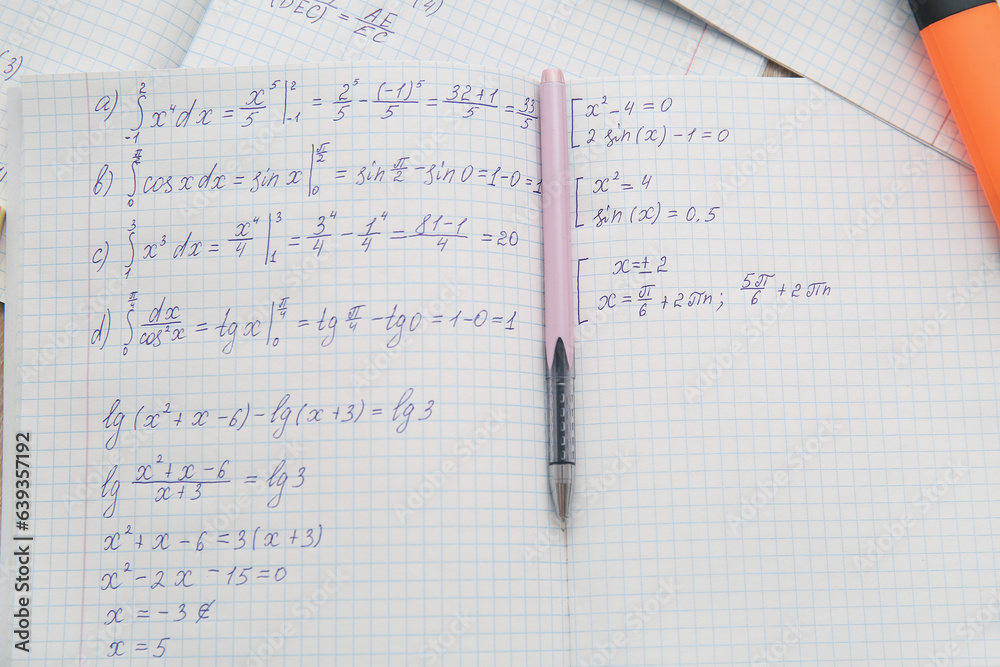 (DEC) = AE/EC (4)
(3)
a) ∫₋₁² x⁴dx = x⁵/5 |₋₁² = 2⁵/5 - (-1)⁵/5 = 32+1/5 = 33/5
b) ∫₀^(π/2) cosxdx = sinx |₀^(π/2) = sin π/2 - sin0 = 1-0 = 1
c) ∫₁³ x³dx = x⁴/4 |₁³ = 3⁴/4 - 1⁴/4 = 81-1/4 = 20
d) ∫₀^(π/4) dx/cos²x = tgx |₀^(π/4) = tg π/4 - tg0 = 1-0 = 1
lg(x²+x-6)-lg(x+3) = lg3
lg x²+x-6/x+3 = lg3
x²+x-6 = 3(x+3)
x²-2x-15 = 0
x = -3 ∉
x = 5
x²-4 = 0
2sin(x)-1 = 0
x² = 4
sin(x) = 0,5
x = ±2
x = π/6 + 2πn; 5π/6 + 2πn
Adobe Stock | #639357192